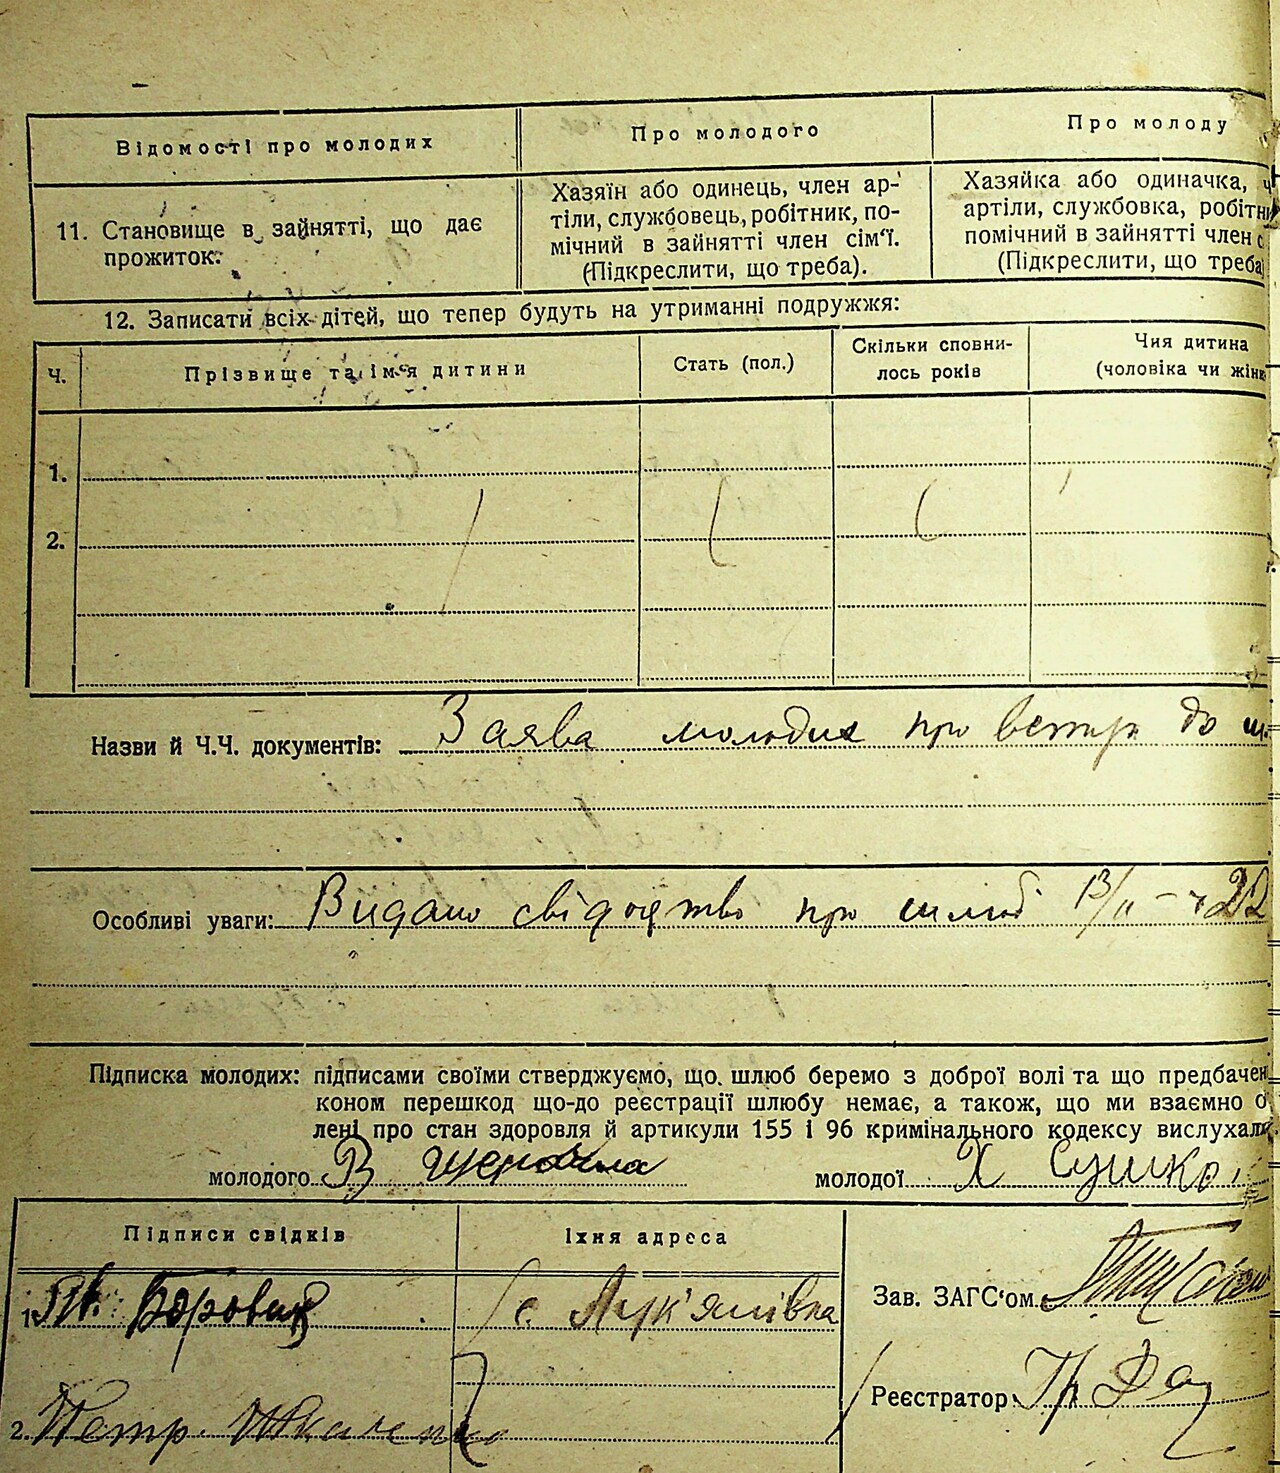 Відомості про молодих
Про молодого
Про молоду
11. Становище в зайнятті, що дає
прожиток:
Хазяїн або одинець, член ар-
тіли, службовець, робітник, по-
мічний в зайнятті член сім'ї.
(Підкреслити, що треба).
Хазяйка або одиначка, ч
артіли, службовка, робітн
помічний в зайнятті член с
(Підкреслити, що треба)
12. Записати всіх дітей, що тепер будуть на утриманні подружжя:
Ч.
Прізвище та ім'я дитини
Стать (пол.)
Скільки сповни-
лось років
Чия дитина
(чоловіка чи жінк
1.
2.
Назви й Ч.Ч. документів: Заява молодих про вступ до ш
Особливі уваги: Видано свідоцтво про шлюб 13/II
Підписка молодих: підписами своїми стверджуємо, що шлюб беремо з доброї волі та що предбачен
коном перешкод що-до реєстрації шлюбу немає, а також, що ми взаємно о
лені про стан здоровля й артикули 155 і 96 кримінального кодексу вислухали
молодого В
молодої Х Сушко
Підписи свідків
Їхня адреса
1. Боровик
с. Лук'янівка
2. Петр. Ткаченко
Зав. ЗАГС'ом
Реєстратор